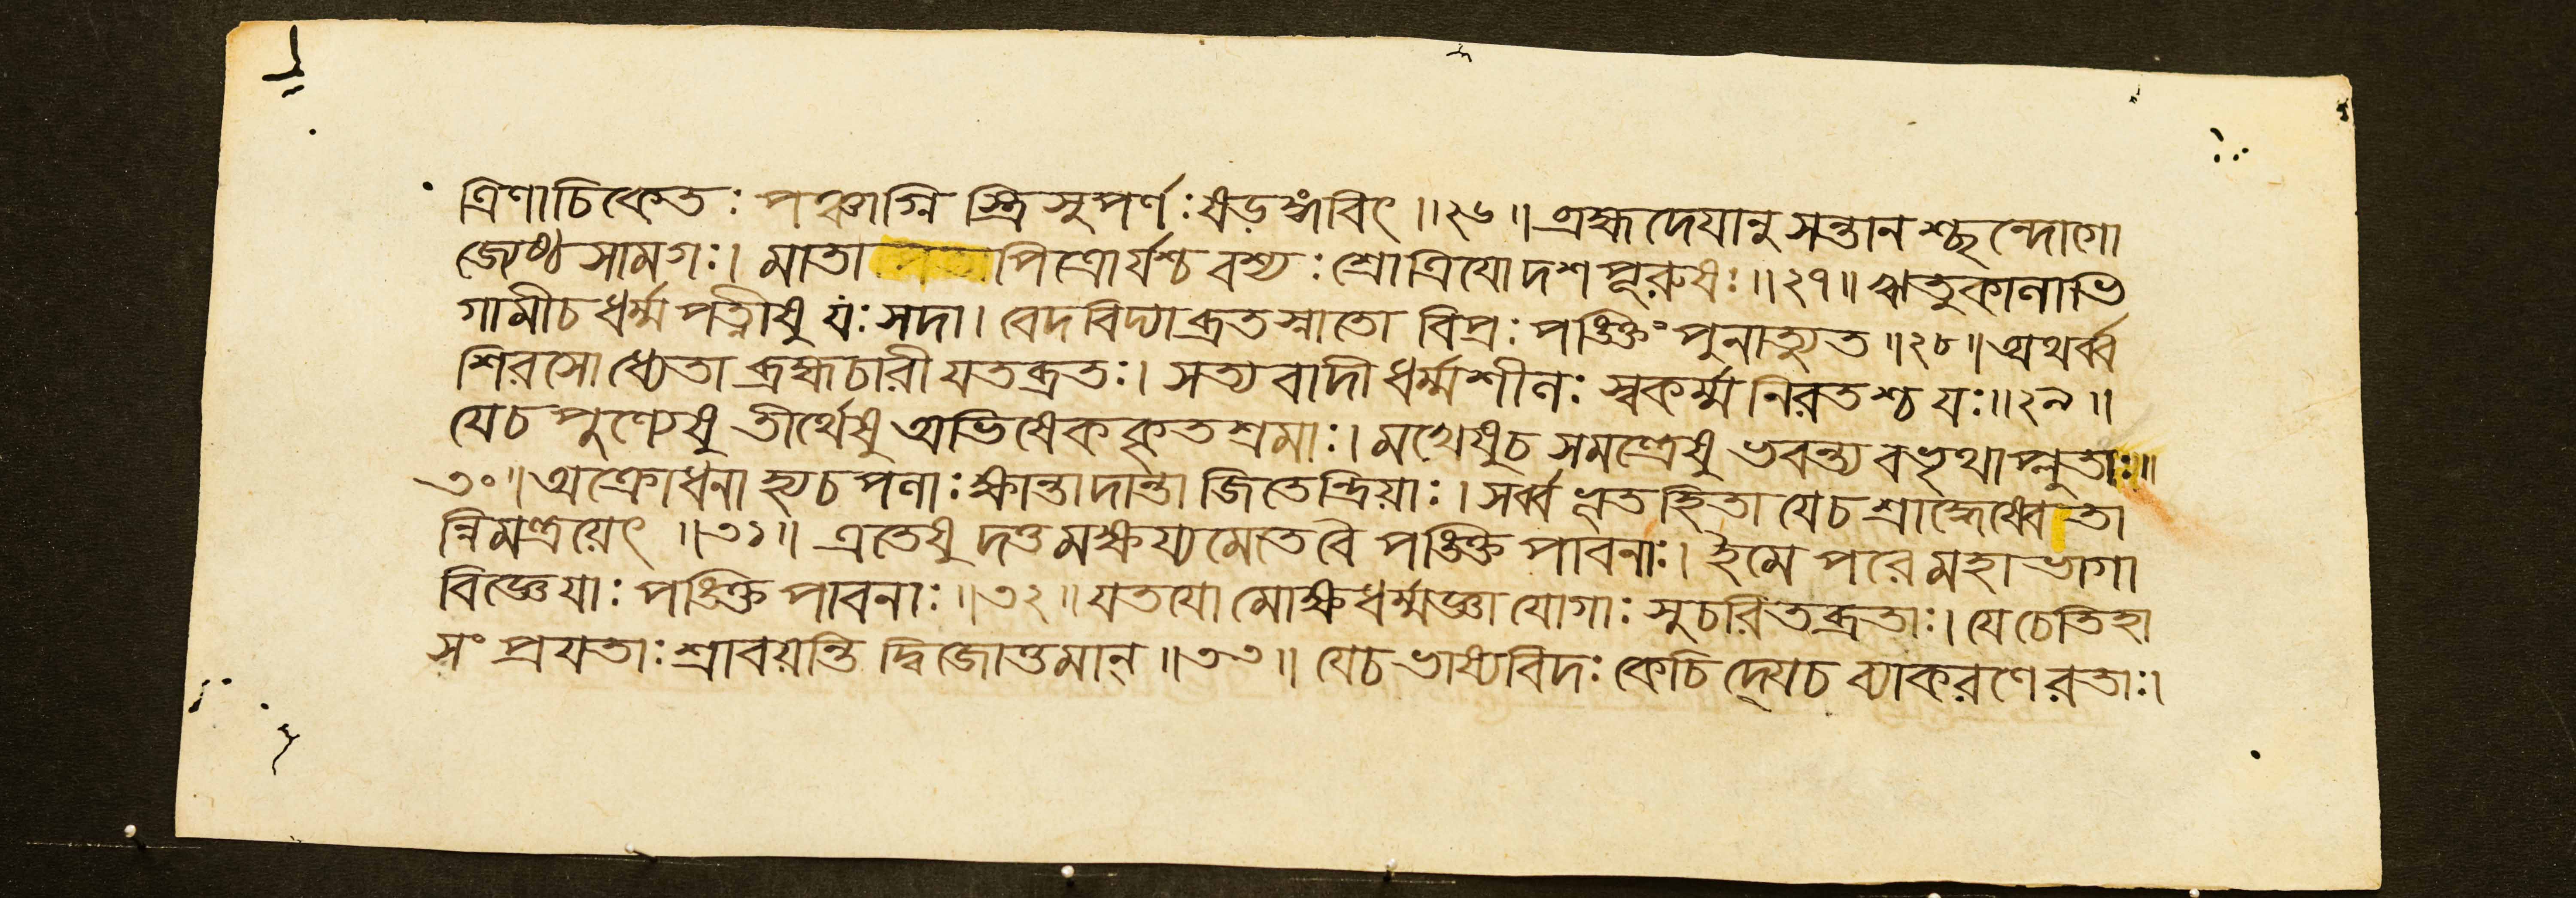 ত্রিণাচিকেতঃ পঞ্চাগ্নি স্ত্রিসুপর্ণঃ ষড়ঙ্গবিৎ ॥২৬॥ ব্রহ্মদেযানু সন্তান শ্ছন্দোগো
জ্যেষ্ঠসামগঃ। মাতা পিত্রোর্যশ্চ বশ্যঃ শ্রোত্রিযো দশপূরুষঃ ॥২৭॥ ঋতুকালাভি
গামীচ ধর্ম্মপত্নীষু যঃ সদা। বেদবিদ্যাব্রতস্নাতো বিপ্রঃ পঙ্ক্তিং পুনাত্যুত ॥২৮॥ অথর্ব্ব
শিরসোধ্যেতা ব্রহ্মচারী যতব্রতঃ। সত্যবাদী ধর্ম্মশীলঃ স্বকর্ম্মনিরতশ্চ যঃ॥২৯॥
যেচ পুণ্যেষু তীর্থেষু অভিষেককৃতশ্রমাঃ। মখেষুচ সমন্ত্রেষু ভবন্ত্যবভৃথাপ্লুতাঃ॥
৩০॥ অক্রোধনা হ্যচপলাঃ ক্ষান্তাদান্তা জিতেন্দ্রিয়াঃ। সর্ব্বভূতহিতা যেচ শ্রাদ্ধেষ্বেতা
ন্নিমন্ত্রয়েৎ ॥৩১॥ এতেষু দত্তমক্ষয্যমেতেবৈ পঙ্ক্তিপাবনাঃ। ইমে পরে মহাভাগা
বিজ্ঞেযাঃ পঙ্ক্তিপাবনাঃ ॥৩২॥ যতযো মোক্ষধর্ম্মজ্ঞা যোগাঃ সুচরিতব্রতাঃ। যেচেতিহা
সং প্রযতাঃ শ্রাবয়ন্তি দ্বিজোত্তমান্ ॥৩৩॥ যেচ ভাষ্যবিদঃ কেচিদ্যেচ ব্যাকরণে রতাঃ।